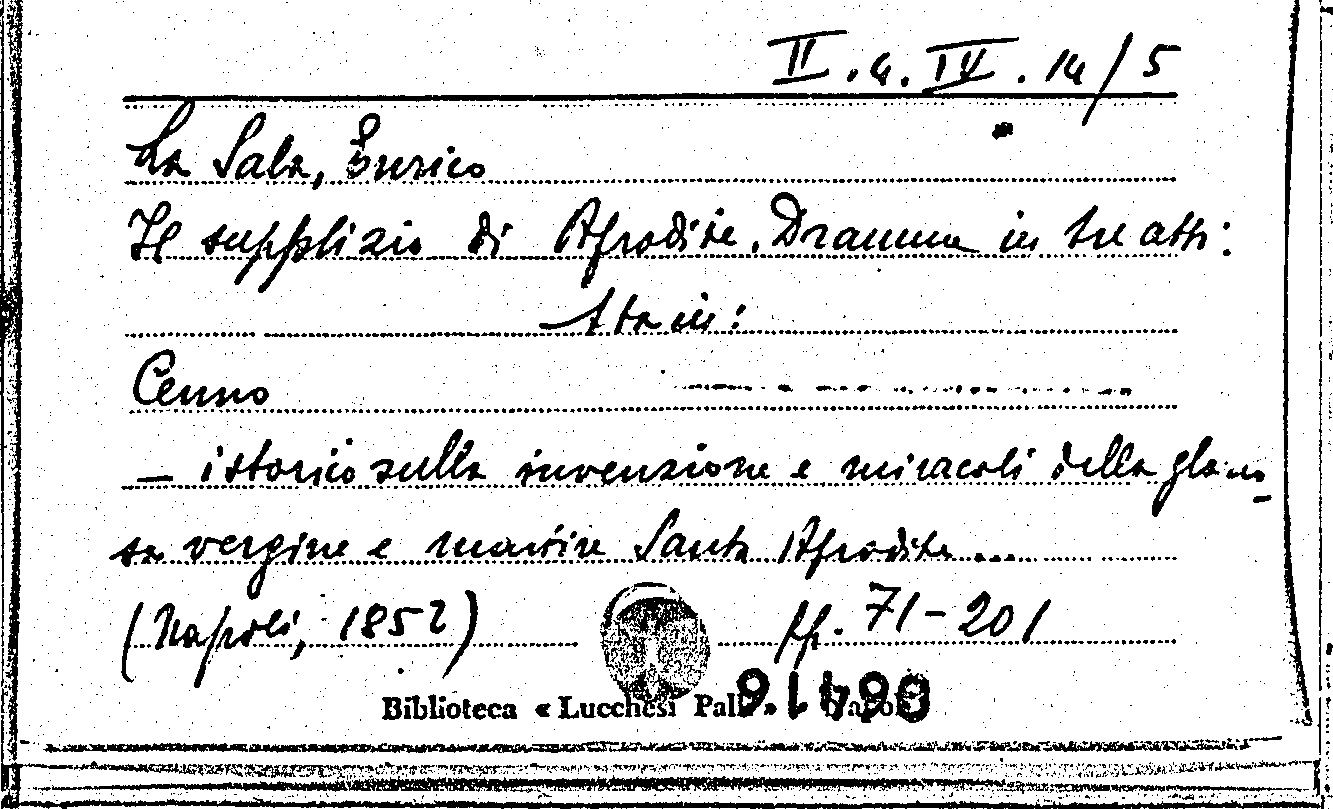 II.4.IV.14/5
La Sala, Enrico
Il supplizio di Afrodite. Dramma in tre atti:
Sta in:
Cenno
— istorico sulla invenzione e miracoli della glorio-
sa vergine e martire Santa Afrodite...
(Napoli, 1852) pp. 71-201
Biblioteca « Lucchesi Palli » Napoli